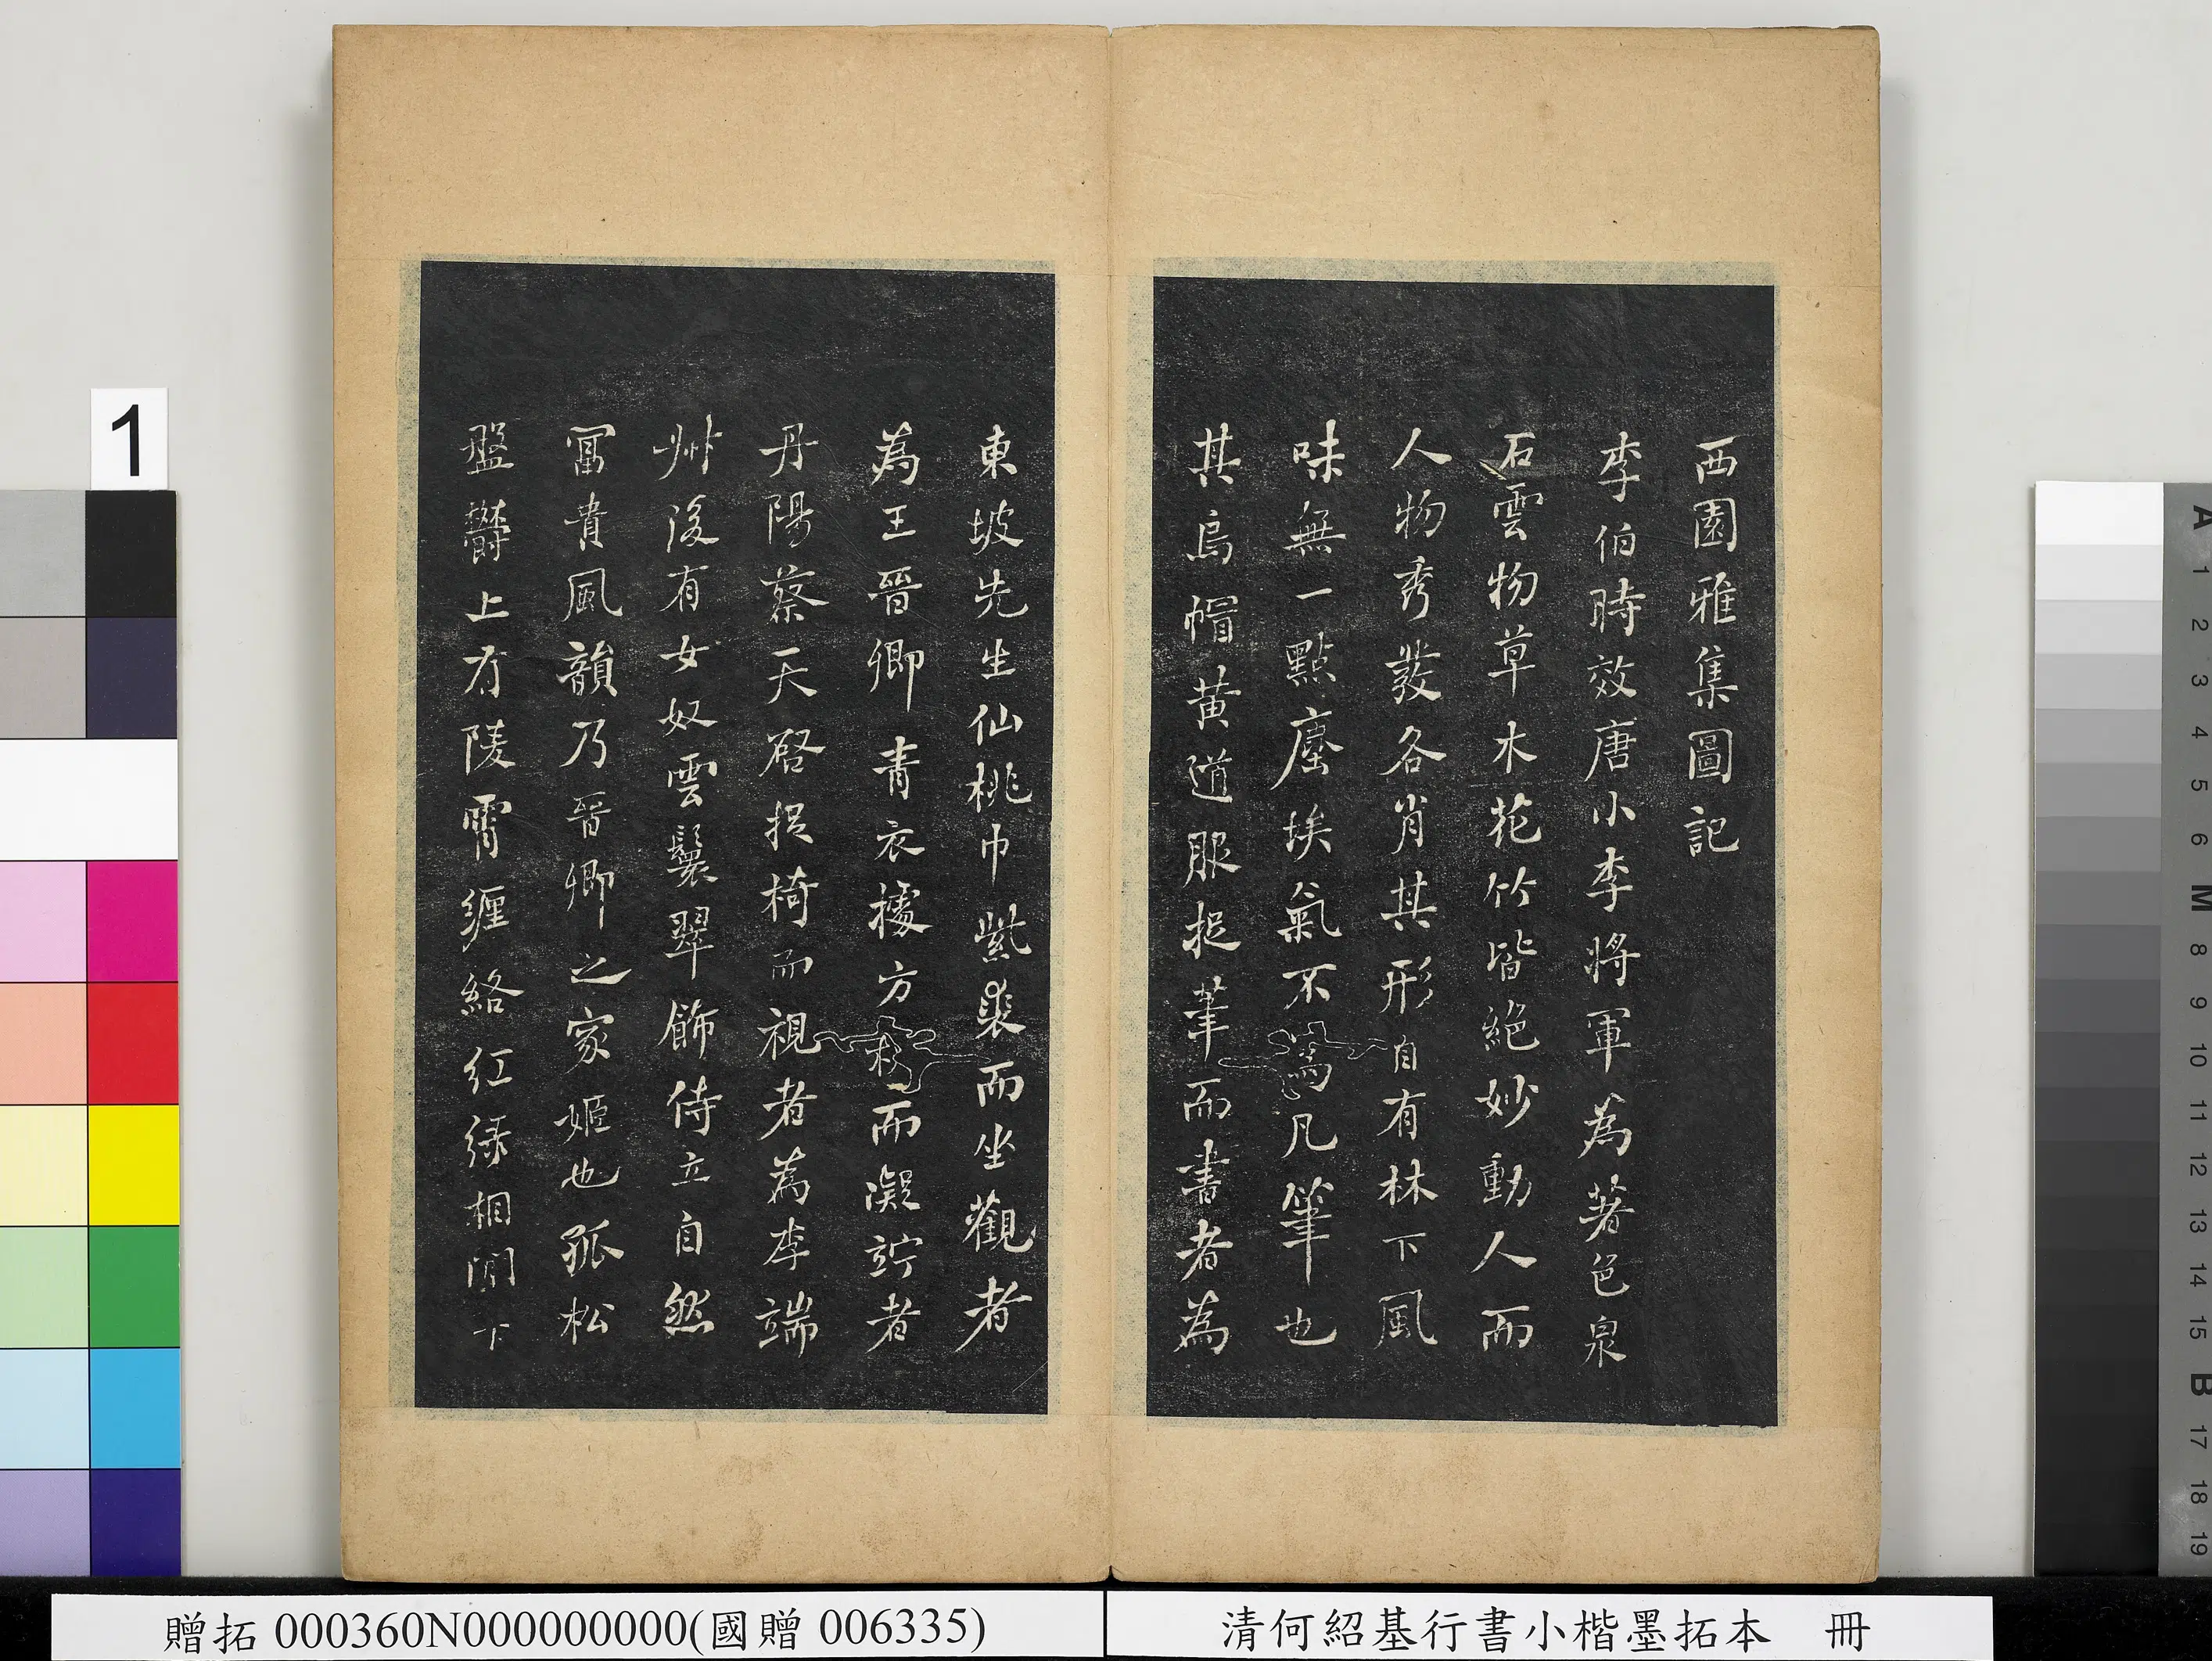 西園雅集圖記
李伯時效唐小李將軍為著色泉
石雲物草木花竹皆絕妙動人而
人物秀發各肖其形自有林下風
味無一點塵埃氣不為凡筆也
其烏帽黃道服捉筆而書者為
東坡先生仙桃巾紫裘而坐觀者
為王晉卿青衣據方机而凝竚者
丹陽蔡天啓捉椅而視者為李端
州後有女奴雲鬟翠飾侍立自然
富貴風韻乃晉卿之家姬也孤松
盤鬱上有陵霄纏絡紅綠相間下
1
贈拓 000360N000000000(國贈 006335)
清何紹基行書小楷墨拓本 冊
A 1 2 3 4 5 6 M 8 9 10 11 12 13 14 15 B 17 18 19